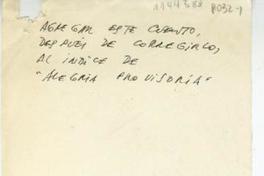 1144388 8032-1
AGREGAR ESTE CUENTO,
DESPUÉS DE CORREGIRLO,
AL INDICE DE
"ALEGRIA PROVISORIA"